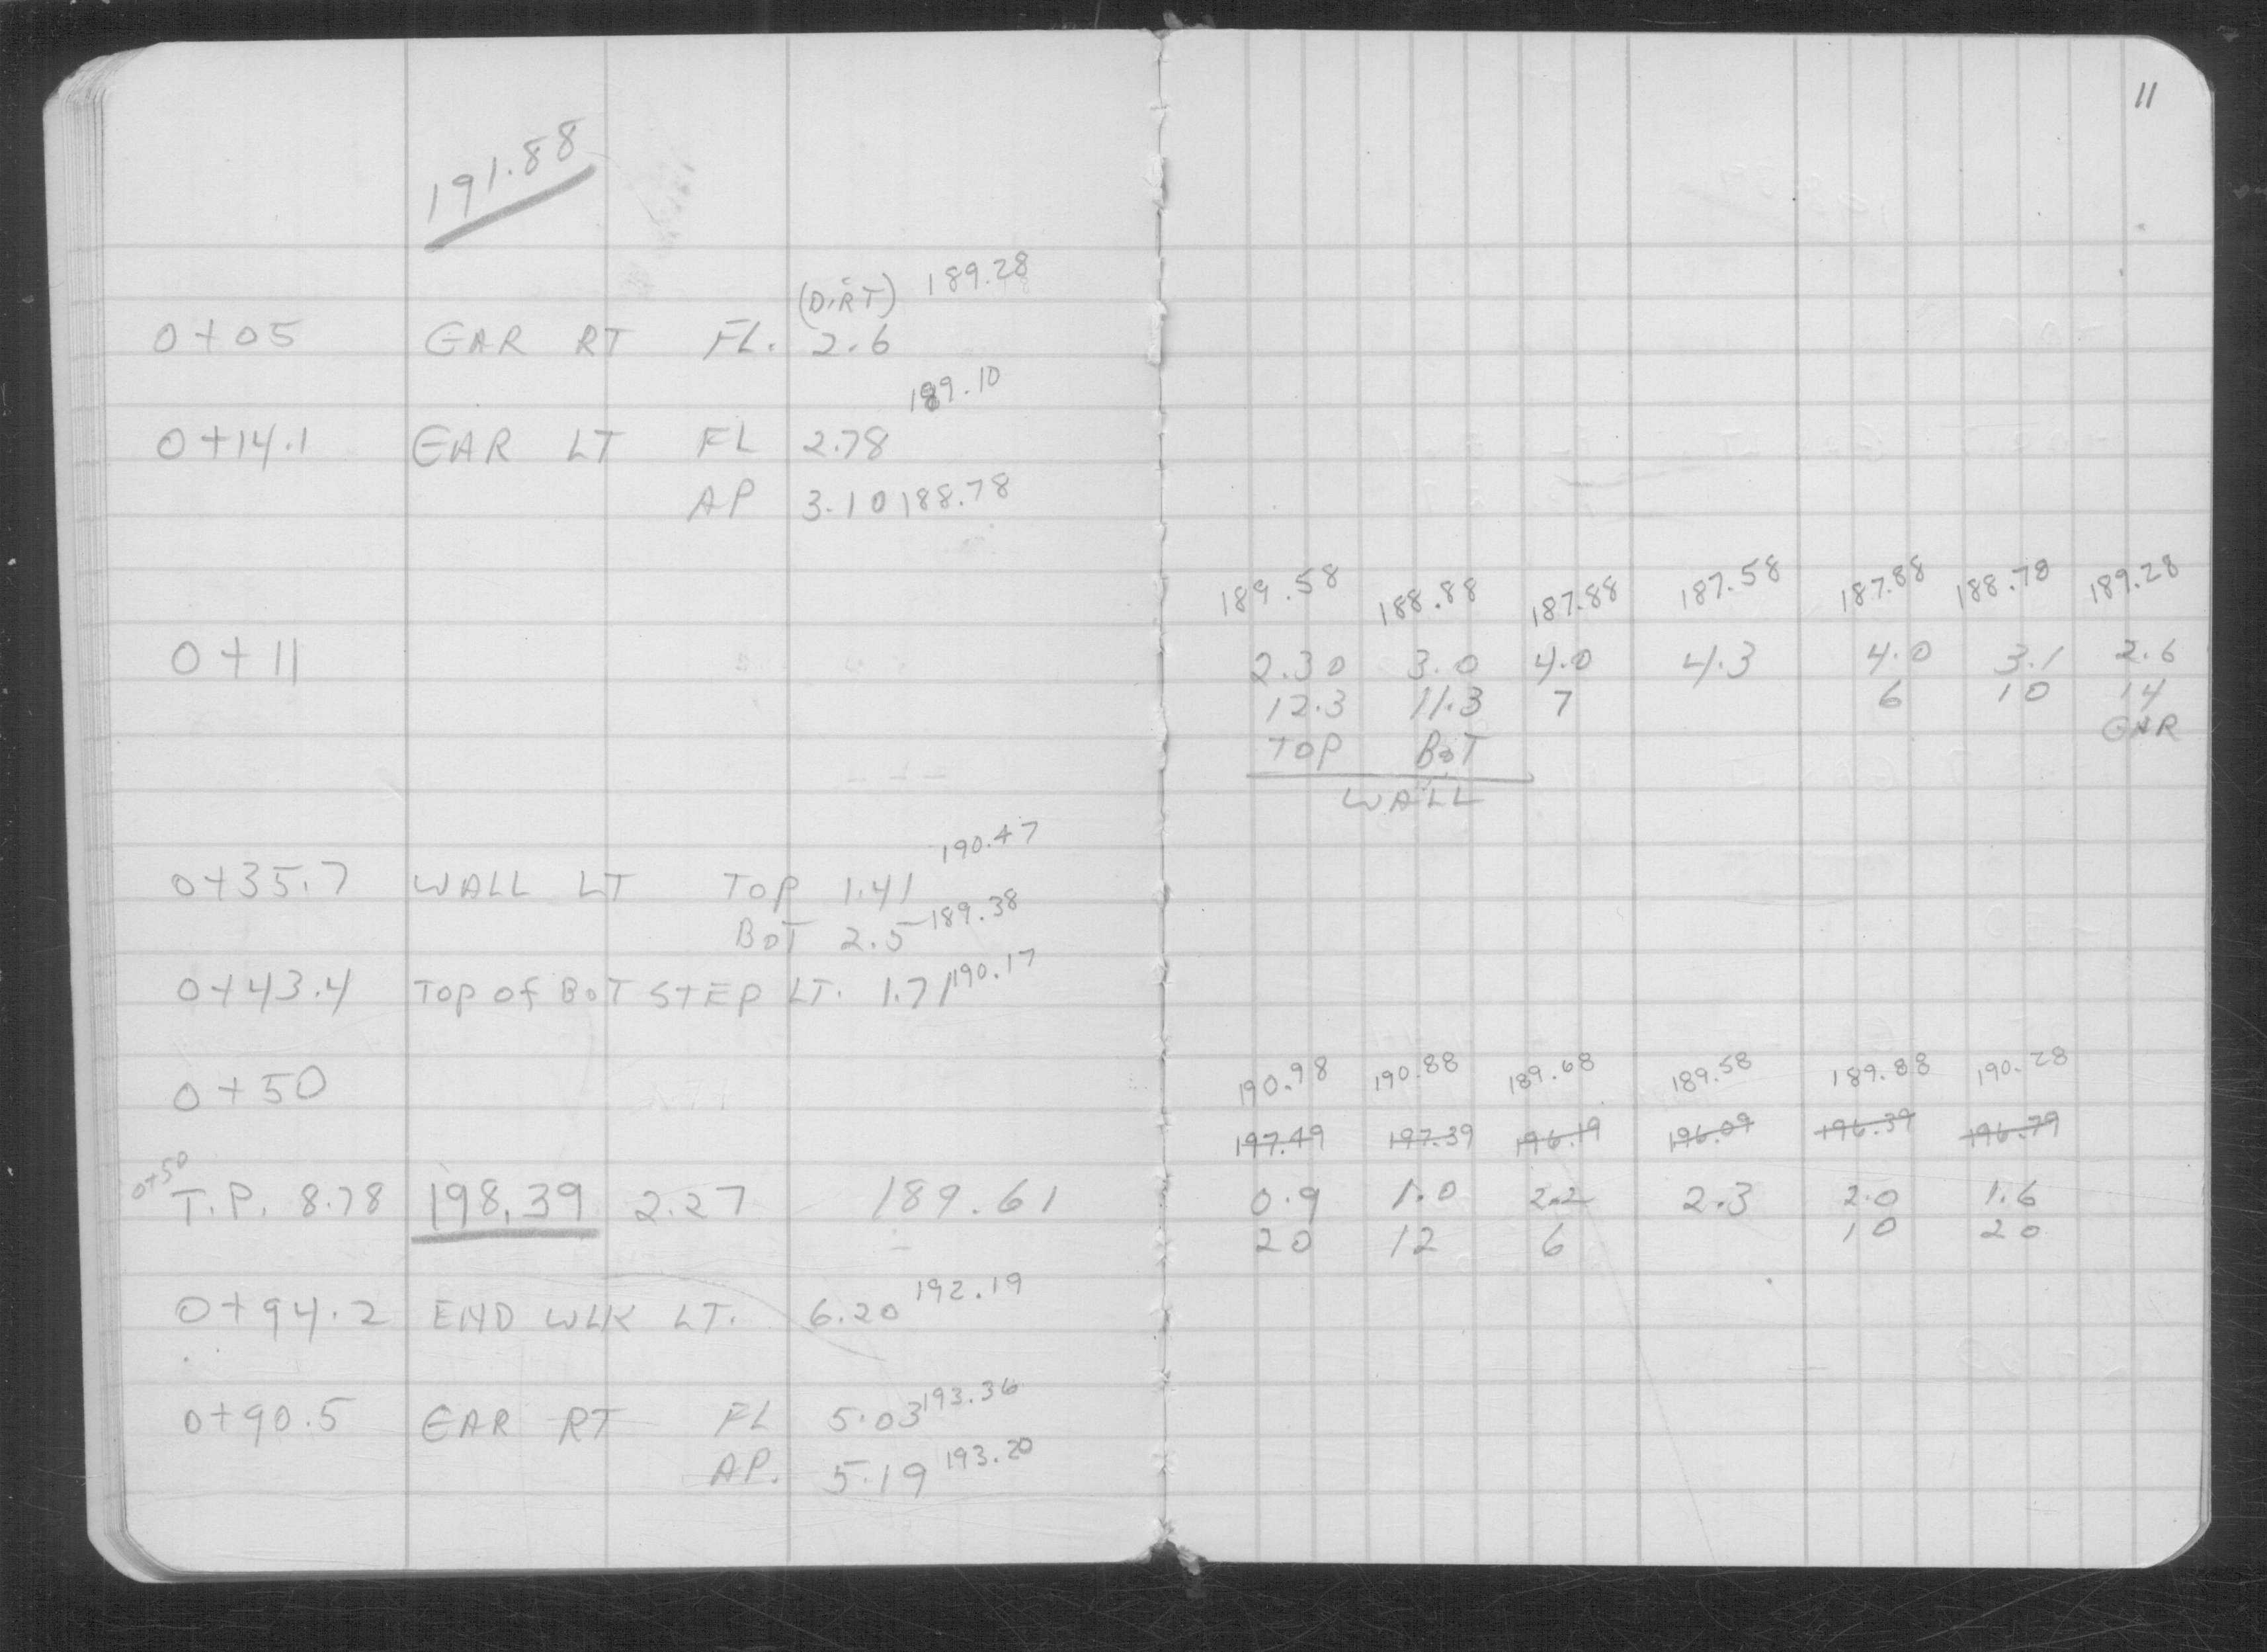 11
191.88
(DIRT) 189.28
0+05 GAR RT FL. 2.6
189.10
0+14.1 GAR LT FL 2.78
AP 3.10 188.78
189.58 188.88 187.88 187.58 187.88 188.78 189.28
0+11 2.30 3.0 4.0 4.3 4.0 3.1 2.6
12.3 11.3 7 6 10 14
TOP BOT GAR
WALL
190.47
0+35.7 WALL LT TOP 1.41
BOT 2.5 189.38
0+43.4 TOP OF BOT STEP LT. 1.71 190.17
0+50 190.98 190.88 189.68 189.58 189.88 190.28
197.49 197.39 196.19 196.09 196.39 196.79
0+50 T.P. 8.78 198.39 2.27 189.61 0.9 1.0 2.2 2.3 2.0 1.6
20 12 6 10 20
0+94.2 END WLK LT. 6.20 192.19
0+90.5 GAR RT FL 5.03 193.36
AP. 5.19 193.20